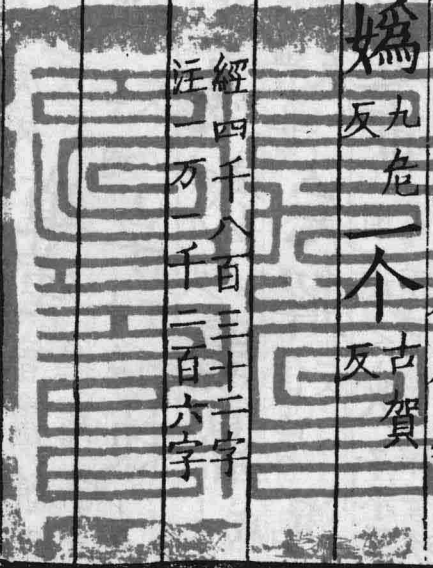 嬀九危反一个古賀反
經四千八百三十二字
注一万一千二百六字